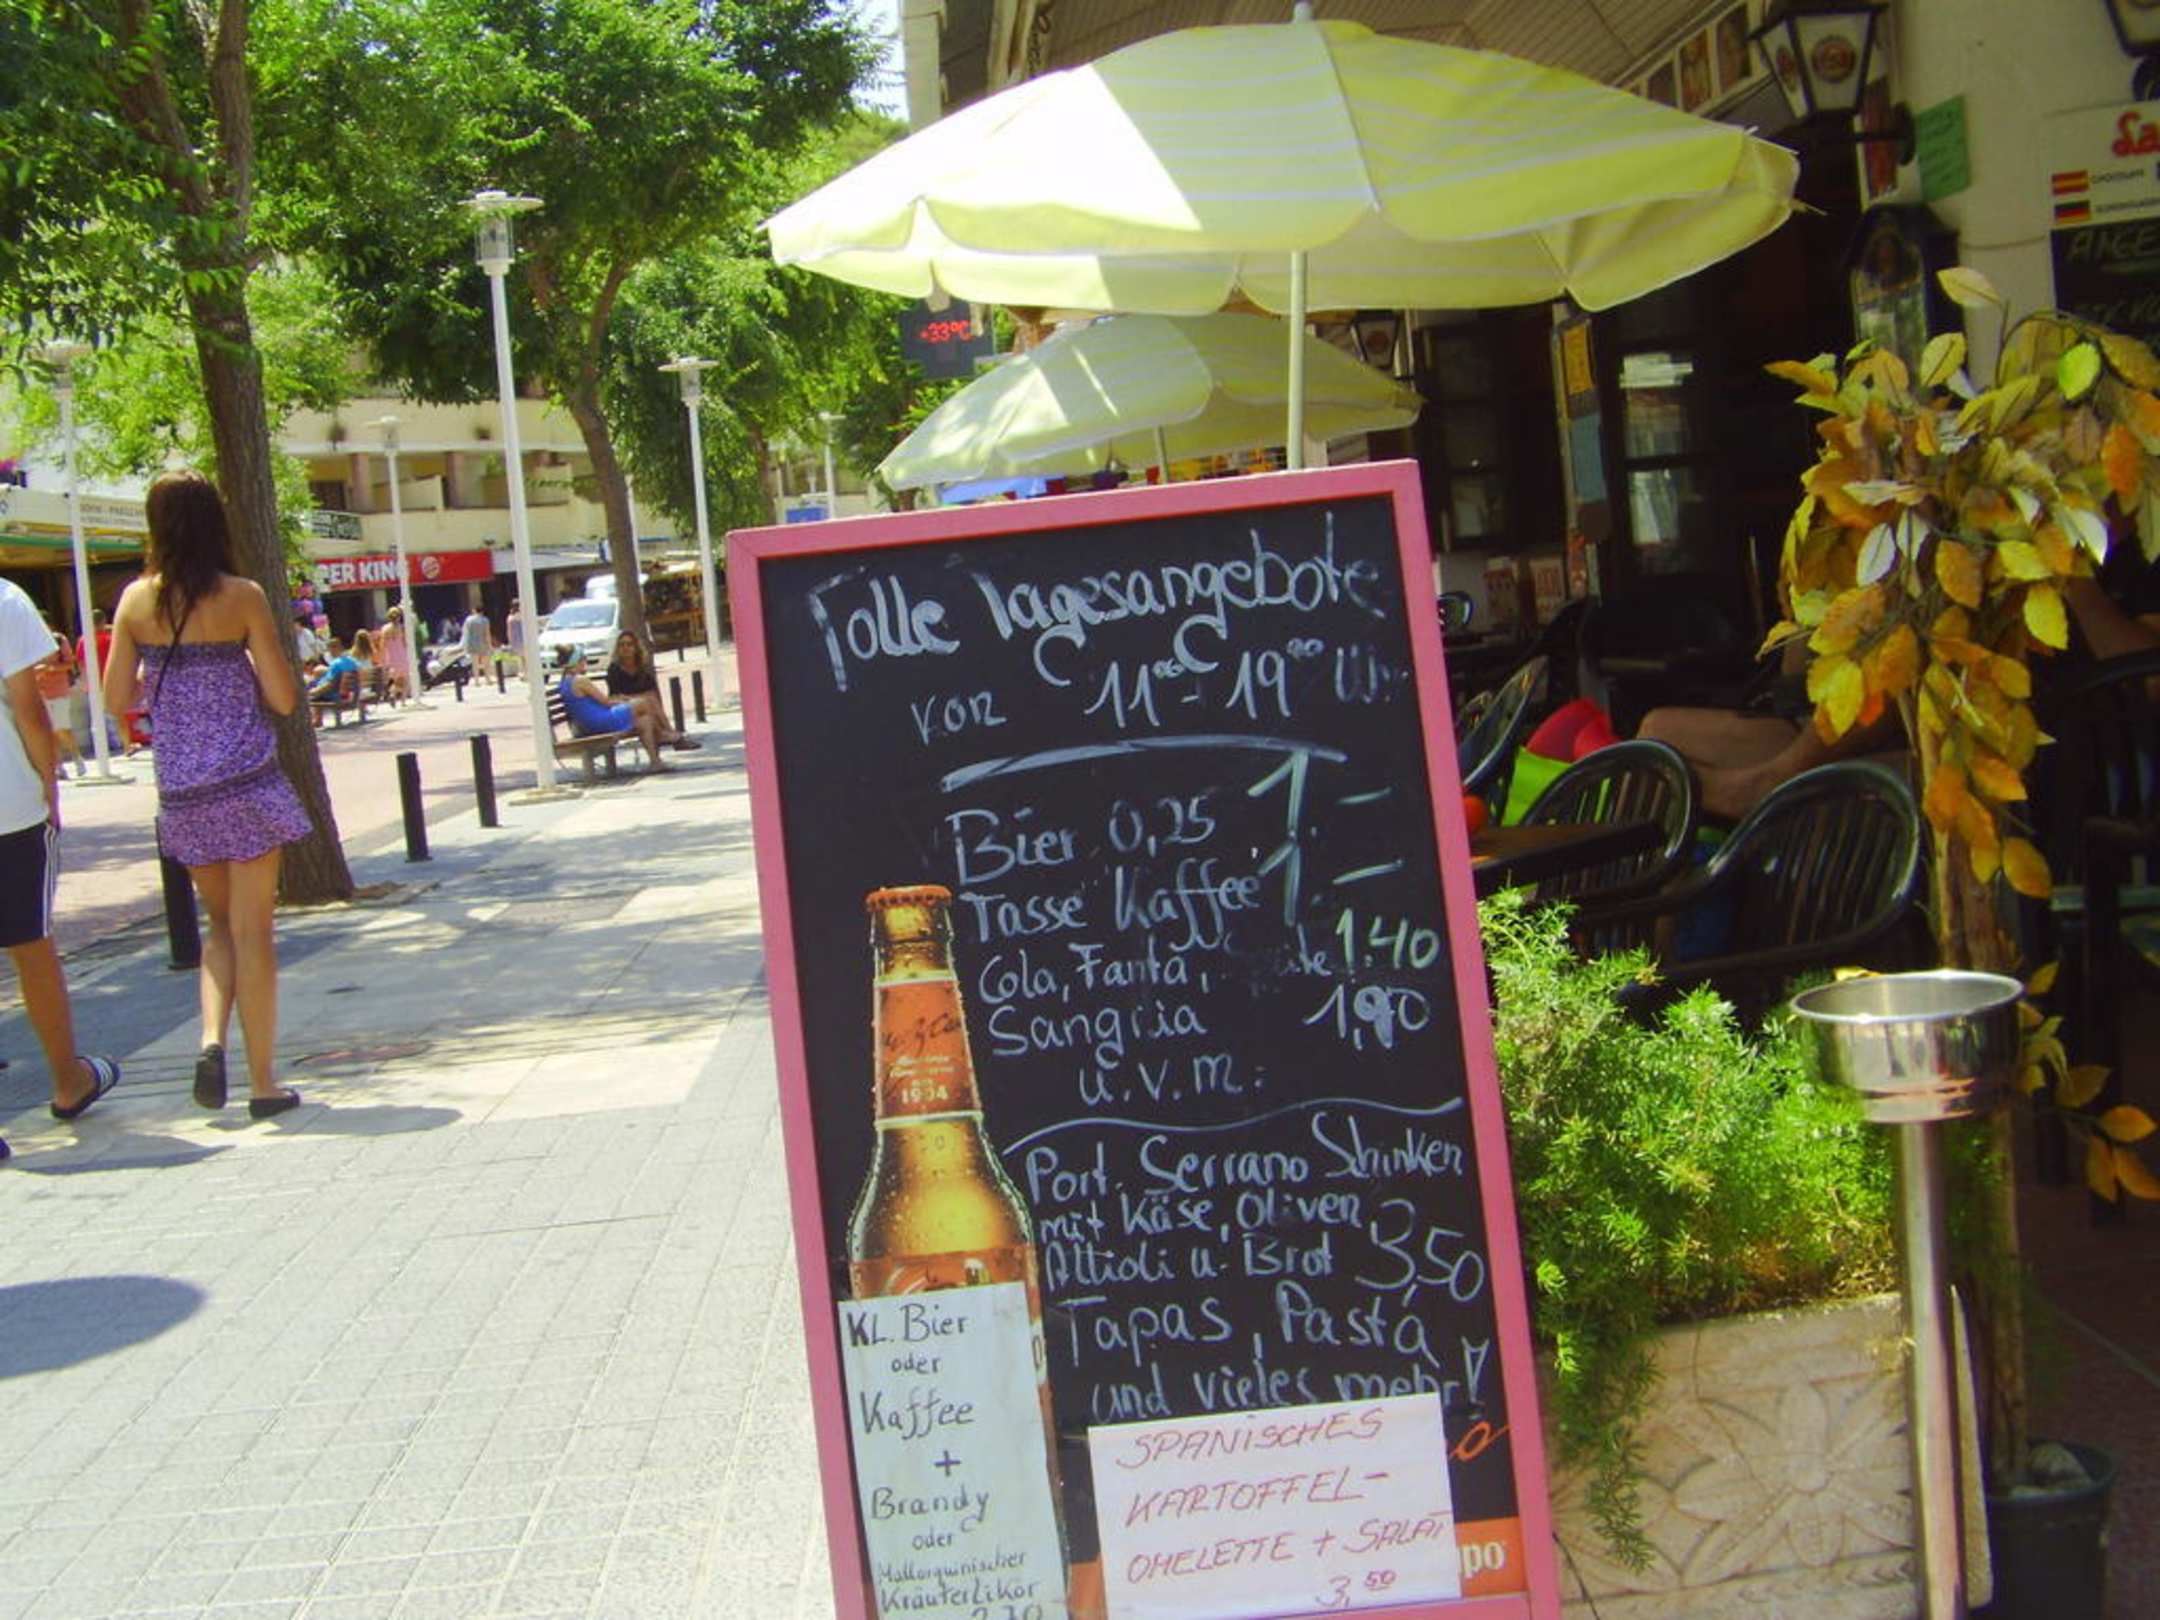 +33°C
GER KING
Tolle Tagesangebote
von 11⁰⁰-19⁰⁰ Uhr
Bier 0,25 1.-
Tasse Kaffee 1.-
Cola, Fanta, 1.40
Sangria 1,90
u.v.m.
Port. Serrano Shinken
mit Käse, Oliven,
Allioli u. Brot 3,50
Tapas, Pasta
und vieles mehr!
1904
KL. Bier
oder
Kaffee
+
Brandy
oder
Mallorquinischer
Kräuterlikör
2.70
SPANISCHES
KARTOFFEL-
OMELETTE + SALAT
3,50
po